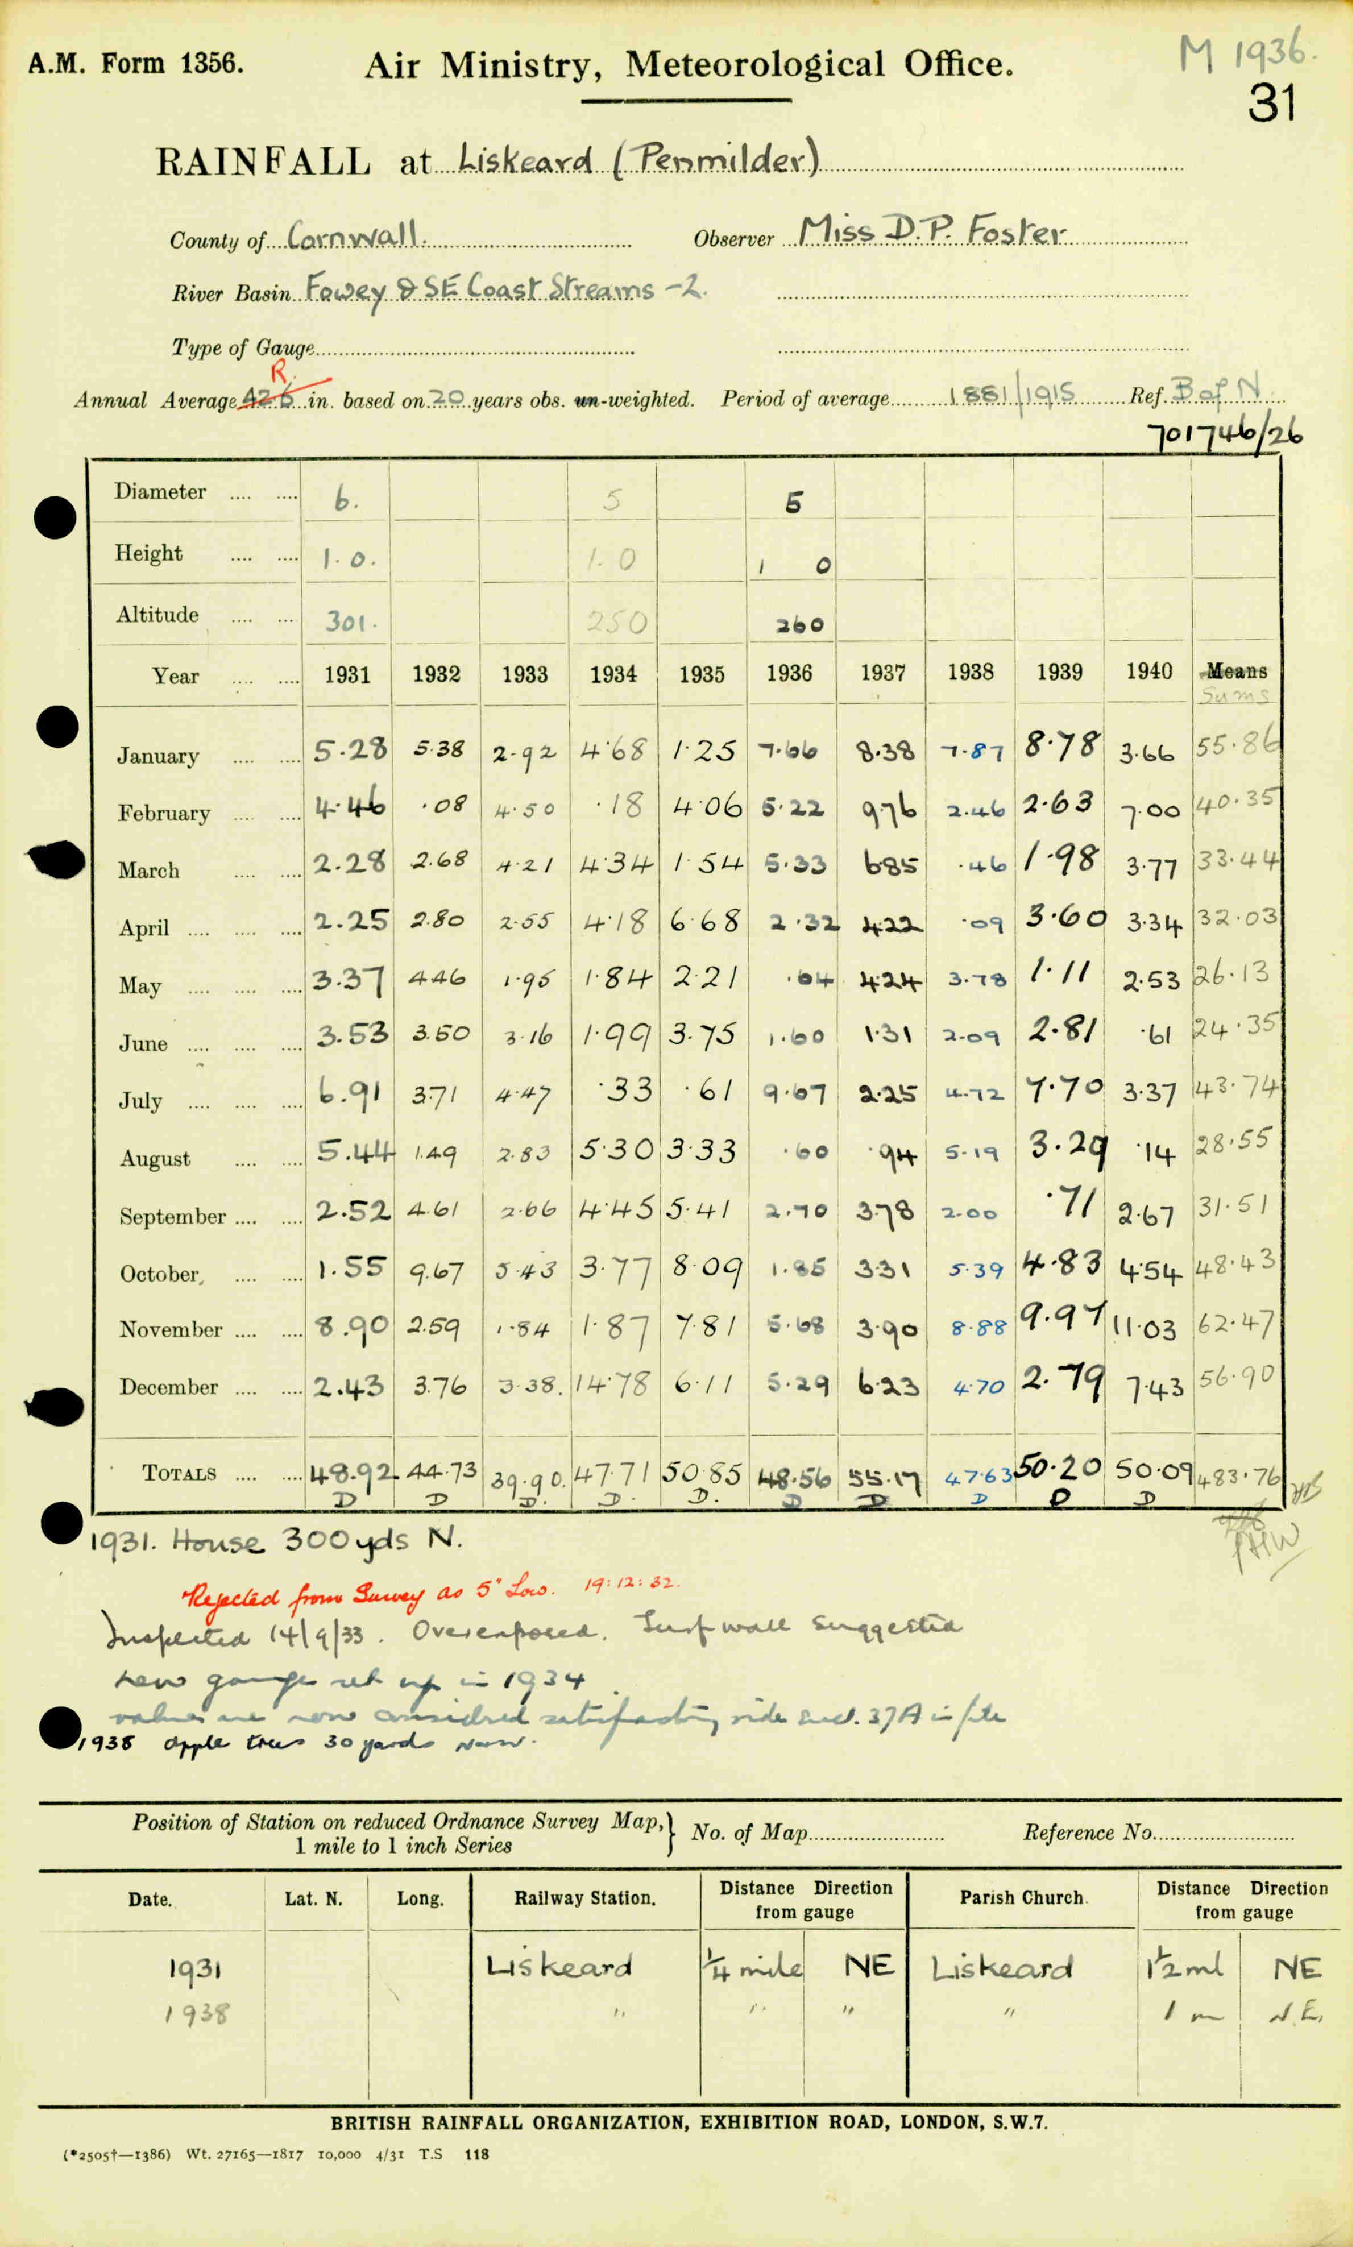 M 1936.
A.M. Form 1356. Air Ministry, Meteorological Office.
31
RAINFALL at Liskeard (Penmilder)
County of Cornwall. Observer Miss D.P. Foster
River Basin Fowey & SE Coast Streams -2.
Type of Gauge
R.
Annual Average 42.6 in. based on 20 years obs. un-weighted. Period of average 1881/1915 Ref. B of N
701746/26
Diameter .... .... 6. 5 5
Height .... .... 1.0. 1.0 1 0
Altitude .... .... 301. 250 260
Year .... .... 1931 1932 1933 1934 1935 1936 1937 1938 1939 1940 Means
Sums
January .... .... 5.28 5.38 2.92 4.68 1.25 7.66 8.38 7.87 8.78 3.66 55.86
February .... .... 4.46 .08 4.50 .18 4.06 5.22 9.76 2.46 2.63 7.00 40.35
March .... .... 2.28 2.68 4.21 4.34 1.54 5.33 6.85 .46 1.98 3.77 33.44
April .... .... .... 2.25 2.80 2.55 4.18 6.68 2.32 4.22 .09 3.60 3.34 32.03
May .... .... .... 3.37 4.46 1.95 1.84 2.21 .64 4.24 3.78 1.11 2.53 26.13
June .... .... .... 3.53 3.50 3.16 1.99 3.75 1.60 1.31 2.09 2.81 .61 24.35
July .... .... .... 6.91 3.71 4.47 .33 .61 9.67 2.25 4.72 7.70 3.37 43.74
August .... .... 5.44 1.49 2.83 5.30 3.33 .60 .94 5.19 3.29 .14 28.55
September .... .... 2.52 4.61 2.66 4.45 5.41 2.70 3.78 2.00 .71 2.67 31.51
October, .... .... 1.55 9.67 5.43 3.77 8.09 1.85 3.31 5.39 4.83 4.54 48.43
November .... .... 8.90 2.59 1.84 1.87 7.81 5.68 3.90 8.88 9.97 11.03 62.47
December .... .... 2.43 3.76 3.38. 14.78 6.11 5.29 6.23 4.70 2.79 7.43 56.90
TOTALS .... .... 48.92 44.73 39.90. 47.71 50.85 48.56 55.17 47.63 50.20 50.09 483.76
D D D. D. D. D D D D D
1931. House 300 yds N.
Rejected from Survey as 5" Low. 19:12:32.
Inspected 14/9/33. Overexposed. Turf wall suggested
New gauge set up in 1934.
values are now considered satisfactory vide encl. 37A in file
1938 Apple trees 30 yards NNW.
Position of Station on reduced Ordnance Survey Map, } No. of Map Reference No.
1 mile to 1 inch Series
Date. Lat. N. Long. Railway Station. Distance Direction from gauge Parish Church. Distance Direction from gauge
1931 Liskeard 1/4 mile NE Liskeard 1 1/2 ml NE
1938 " " " " 1 m N.E.
BRITISH RAINFALL ORGANIZATION, EXHIBITION ROAD, LONDON, S.W.7.
(*2505†—1386) Wt. 27165—1817 10,000 4/31 T.S 118